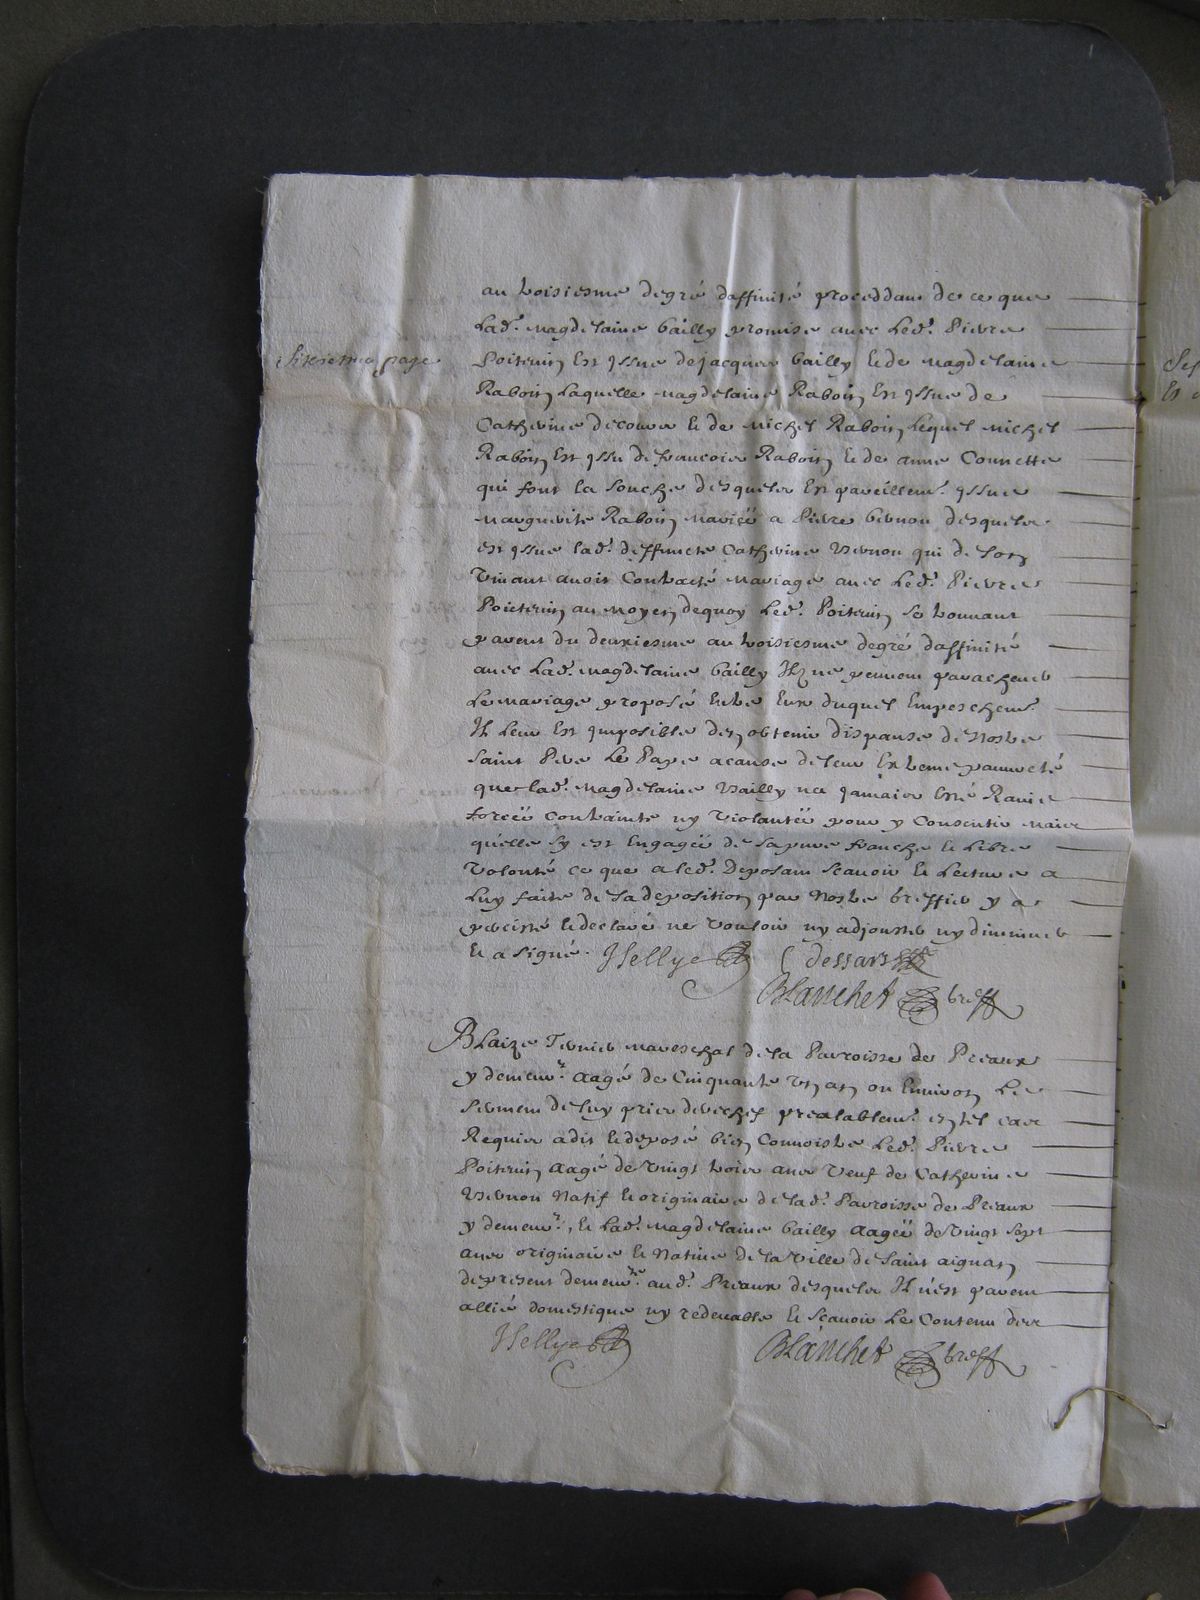 au troisiesme degré daffinité proceddant de ce que
Lad.e Magdelaine bailly promise avec Led.t Pierre
Sixiesme page
Poitevin Est yssue de jacques bailly Et de Magdelaine
Raboin, Laquelle Magdelaine Raboin Est yssue de
Catherine Et de Michel Raboin, Lequel Michel
Raboin Est yssu de francois Raboin Et de anne Connette
qui font la souche desquels Est pareillem.t yssue
Marguerite Raboin mariëë a Pierre bernon desquels
est yssue lad.e deffuncte Catherine Bernon qui de son
Vivant avoit Contracté Mariage avec Led.t Pierre
Poitevin au Moyen dequoy Led.t Poitevin se trouvant
parent du deuxiesme au troisiesme degré daffinité
avec Lad.e Magdelaine bailly Ilz ne peuvent parachever
Le Mariage proposé Entre Eux duquel Empeschem.t
Il Leur Est Imposible den obtenir dispance de Nostre
Saint Pere Le Pape a cause de leur Extreme pauvreté
que lad.e Magdelaine Bailly na jamais Esté Ravie
forcëë Contrainte ny Violantëë pour y Consentir Mais
quelle sy est Engagëë de sa pure franche Et Libre
Volonté ce que a led.t Deposant scavoir Et Lecture a
Luy faite de sa deposition par Nostre Greffier y a
percisté Et declaré ne Vouloir ny adjouster ny diminuer
Et a signé. Hellye Dessars
Blanchet Greff
Blaize mareschal de la Parroisse de Preaux
y demeur.t aagé de Cinquante Un an ou Environ, Le
Serment de luy pris derechef prealablem.t en tel cas
Requis a dit Et deposé bien Connoistre Led.t Pierre
Poitevin aagé de Vingt trois ans Veuf de Catherine
Bernon Natif Et originaire de lad.e Parroisse de Preaux
y demeur.t, Et Lad.e Magdelaine bailly aagëë de Vingt sept
ans originaire Et Native de la Ville de Saint aignan,
de present demeur.te aud.t Preaux desquels Il n'est parent
allié domestique ny redevable Et scavoir Le Contenu des
Hellye Blanchet Greff